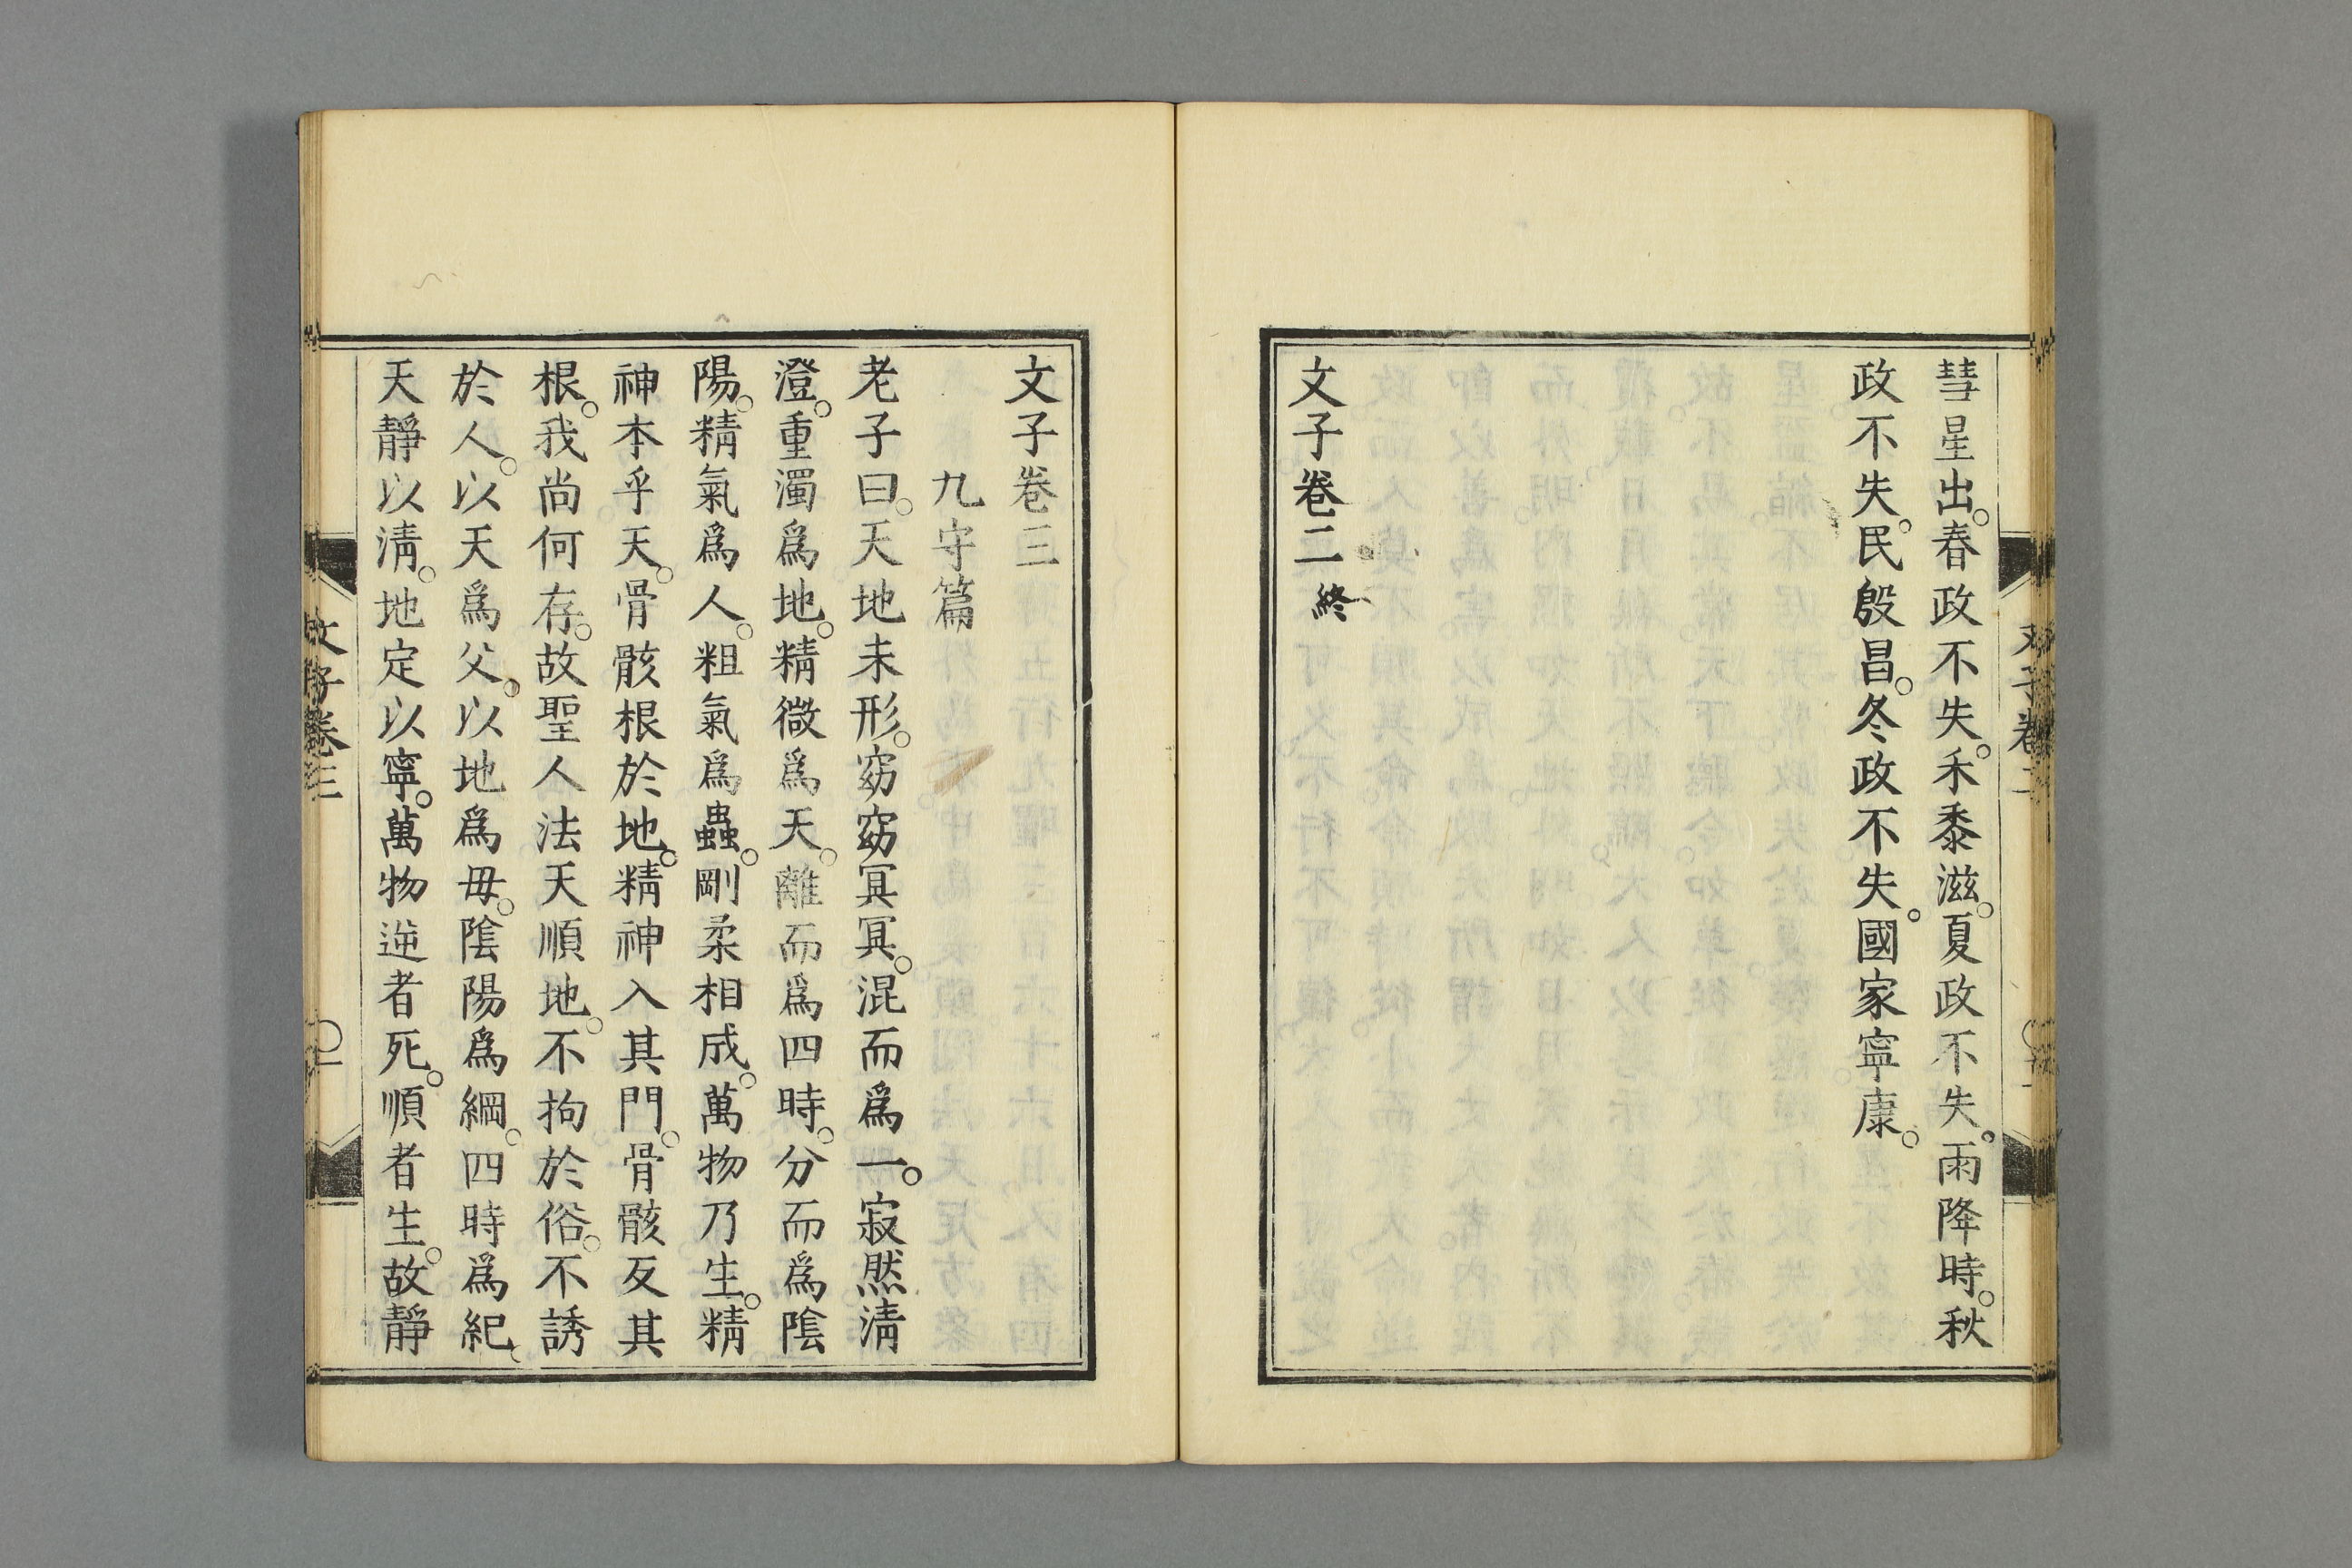 彗星出。春政不失。禾黍滋。夏政不失。雨降時。秋
政不失。民殷昌。冬政不失。國家寧康。
文子卷二終
文子卷三
九守篇
老子曰。天地未形。窈窈冥冥。混而爲一。寂然清
澄。重濁爲地。精微爲天。離而爲四時。分而爲陰
陽。精氣爲人。粗氣爲蟲。剛柔相成。萬物乃生。精
神本乎天。骨骸根於地。精神入其門。骨骸反其
根。我尚何存。故聖人法天順地。不拘於俗。不誘
於人。以天爲父。以地爲母。陰陽爲綱。四時爲紀。
天靜以清。地定以寧。萬物逆者死。順者生。故靜
文子卷三